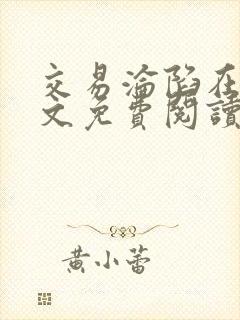 交易淪陷在
文免費閱讀
黃小蕾